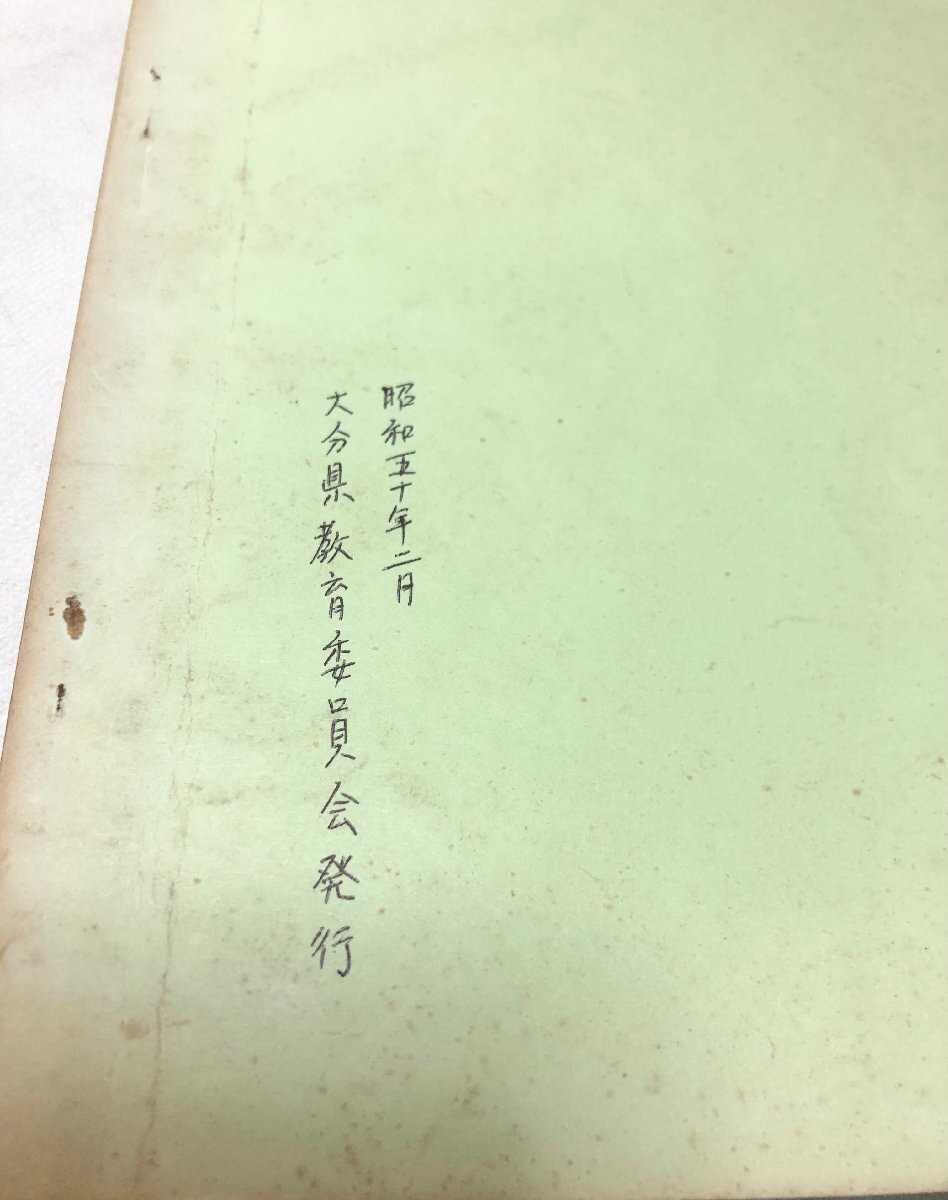 昭和五十年二月
大分県教育委員会発行